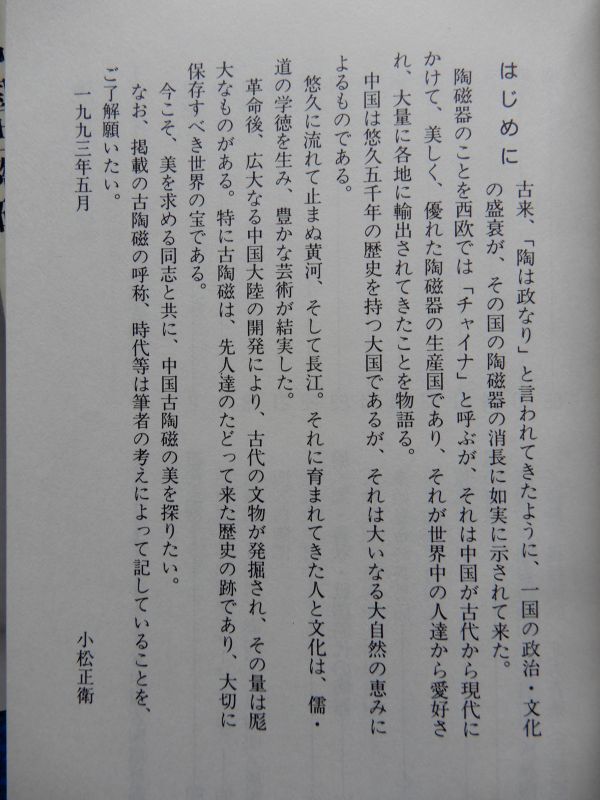 はじめに
古来、「陶は政なり」と言われてきたように、一国の政治・文化
の盛衰が、その国の陶磁器の消長に如実に示されて来た。
陶磁器のことを西欧では「チャイナ」と呼ぶが、それは中国が古代から現代に
かけて、美しく、優れた陶磁器の生産国であり、それが世界中の人達から愛好さ
れ、大量に各地に輸出されてきたことを物語る。
中国は悠久五千年の歴史を持つ大国であるが、それは大いなる大自然の恵みに
よるものである。
悠久に流れて止まぬ黄河、そして長江。それに育まれてきた人と文化は、儒・
道の学徳を生み、豊かな芸術が結実した。
革命後、広大なる中国大陸の開発により、古代の文物が発掘され、その量は厖
大なものがある。特に古陶磁は、先人達のたどって来た歴史の跡であり、大切に
保存すべき世界の宝である。
今こそ、美を求める同志と共に、中国古陶磁の美を探りたい。
なお、掲載の古陶磁の呼称、時代等は筆者の考えによって記していることを、
ご了解願いたい。
一九九三年五月
小松正衛